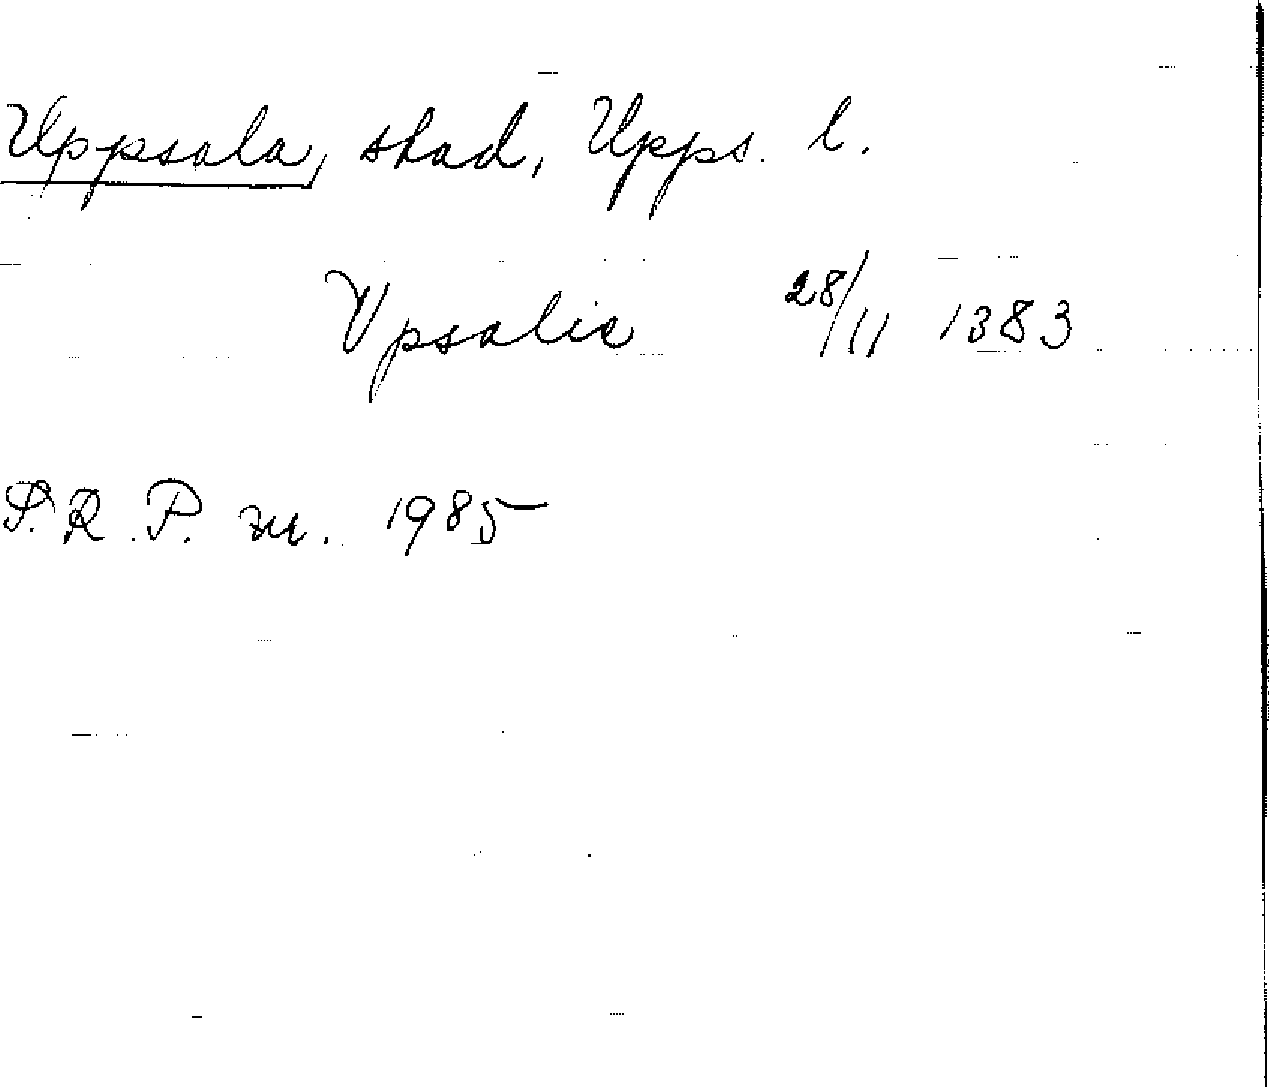 Uppsala, stad, Upps. l.
Vpsalie 28/11 1383
S.R.P. nr. 1985